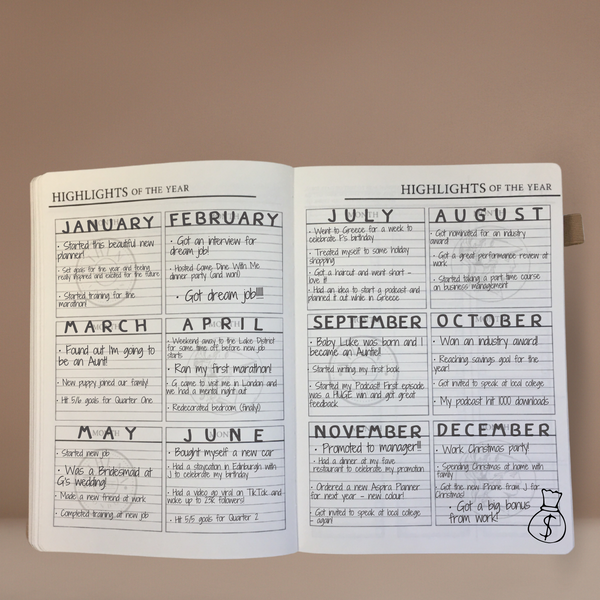 HIGHLIGHTS OF THE YEAR
JANUARY
• Started this beautiful new
planner!
• Set goals for the year and feeling
really inspired and excited for the future
• Started training for the
marathon!
FEBRUARY
• Got an interview for
dream job!
• Hosted Come Dine With Me
dinner party (and won!)
• Got dream job!!!!!
MARCH
• Found out I'm going to
be an Aunt!
• New puppy joined our family!
• Hit 5/6 goals for Quarter One
APRIL
• Weekend away to the Lake District
for some time off before new job
starts
• Ran my first marathon!
• G came to visit me in London and
we had a mental night out
• Redecorated bedroom (finally)
MAY
• Started new job
• Was a Bridesmaid at
G's wedding!
• Made a new friend at work
• Completed training at new job
JUNE
• Bought myself a new car
• Had a staycation in Edinburgh with
J to celebrate my birthday
• Had a video go viral on TikTok and
woke up to 25K followers!
• Hit 5/5 goals for Quarter 2
HIGHLIGHTS OF THE YEAR
JULY
• Went to Greece for a week to
celebrate P's birthday
• Treated myself to some holiday
shopping
• Got a haircut and went short -
love it!
• Had an idea to start a podcast and
planned it out while in Greece
AUGUST
• Got nominated for an industry
award!
• Got a great performance review at
work
• Started taking a part time course
on business management
SEPTEMBER
• Baby Luke was born and I
became an Auntie!
• Started writing my first book
• Started my Podcast! First episode
was a HUGE win and got great
feedback
OCTOBER
• Won an industry award!
• Reaching savings goal for the
year!
• Got invited to speak at local college
• My podcast hit 1000 downloads
NOVEMBER
• Promoted to manager!!!
• Had a dinner at my fave
restaurant to celebrate my promotion
• Ordered a new Aspira Planner
for next year - new colour!
• Got invited to speak at local college
again!
DECEMBER
• Work Christmas party!
• Spending Christmas at home with
family
• Got the new iPhone from J for
Christmas!
• Got a big bonus
from work!
$